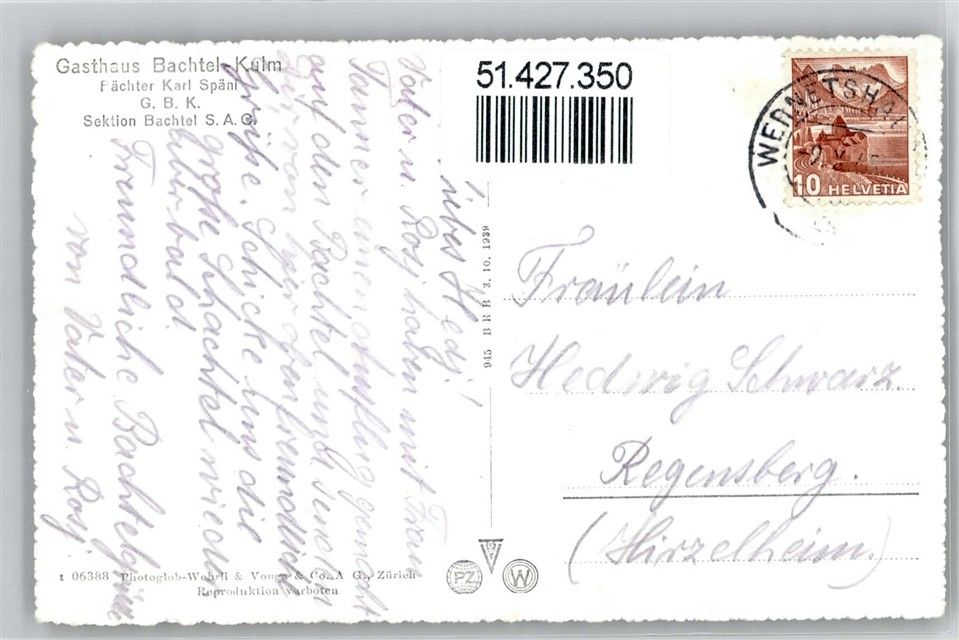 Gasthaus Bachtel-Kulm
Pächter Karl Späni
G. B. K.
Sektion Bachtel S. A. C.
51.427.350
WERNETSHA
10 HELVETIA
liebes Hedy!
Vater u. Rosj haben mit Frau
Tanner einen Ausflug gemacht
auf den Bachtel und senden
dir von hier den freundliche
Grüsse. Schicke uns die
große Schachtel wieder
aber bald.
Freundliche Bachtelgrüsse
von Vater u. Rosj.
945 BRB 3. 10. 1939
Fräulein
Hedwig Schwarz.
Regensberg.
(Hirzelheim.)
t 06388 Photoglob-Wehrli & Vouga & Co., A. G., Zürich
Reproduktion verboten
PZ
W